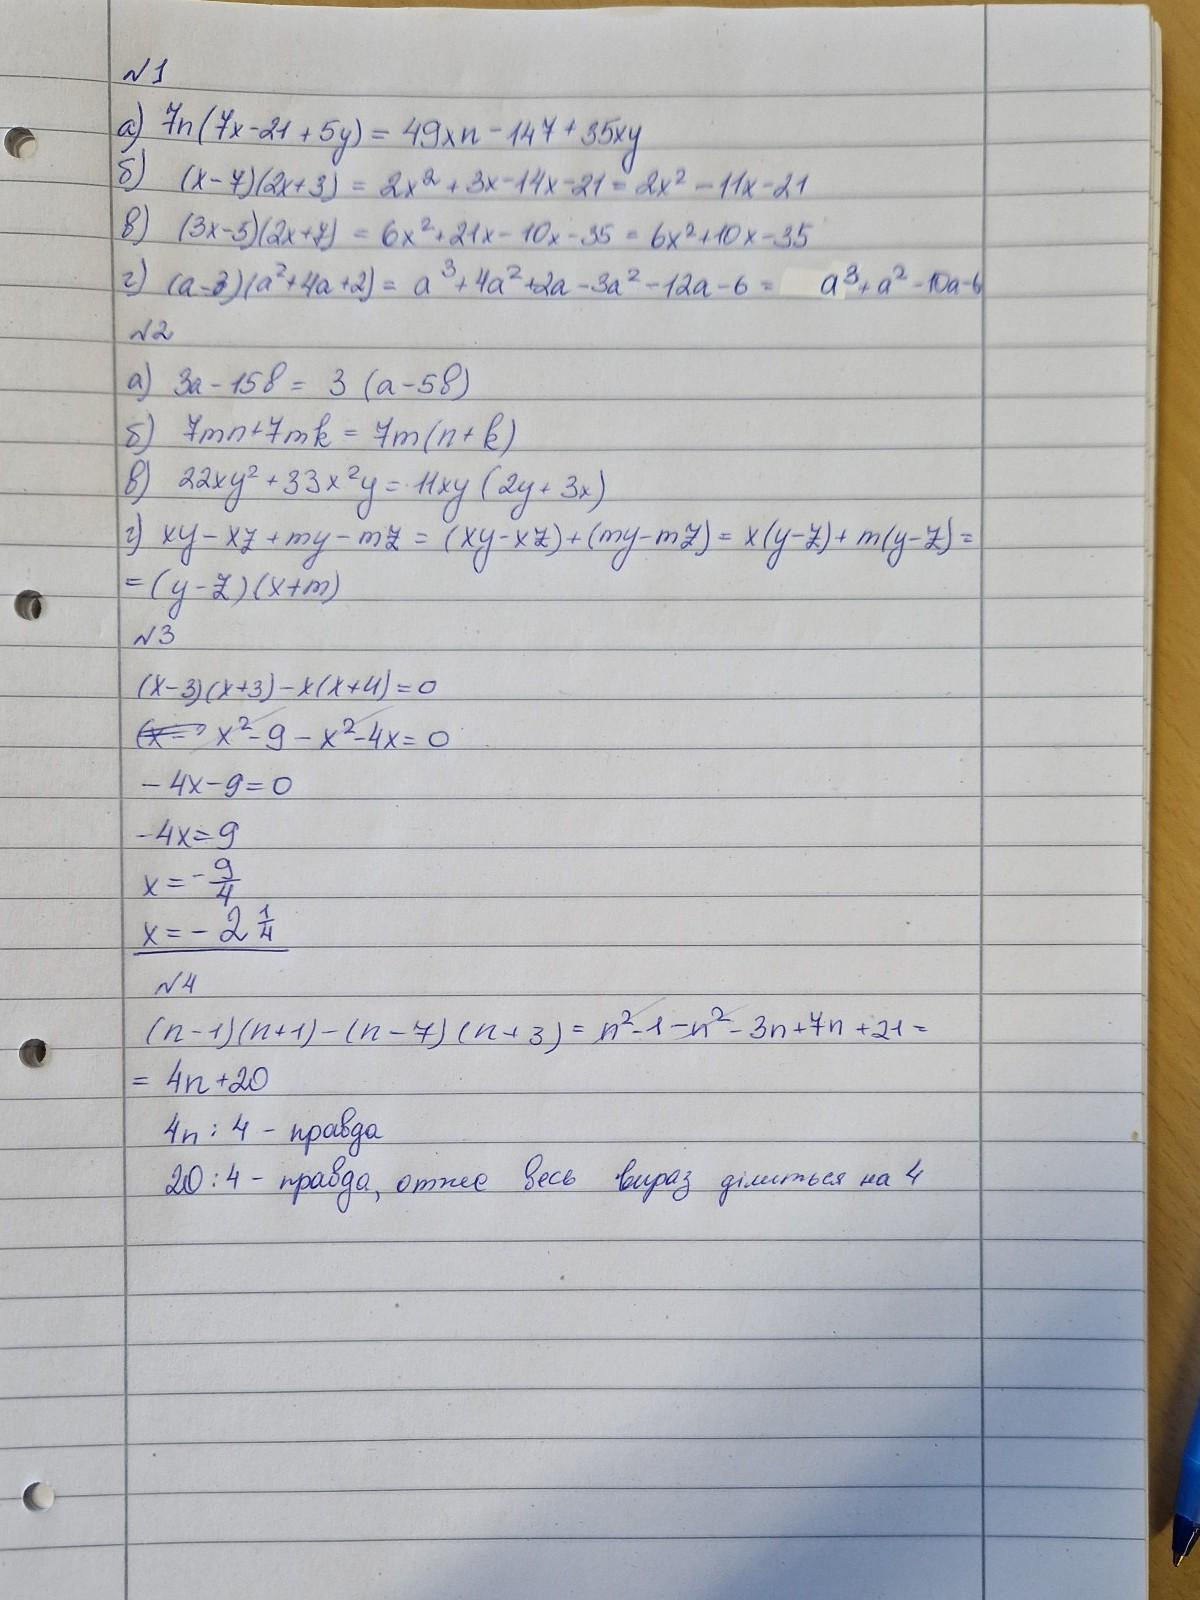 №1
а) 7n(7x-21+5y) = 49xn-147+35xy
б) (x-7)(2x+3) = 2x²+3x-14x-21 = 2x²-11x-21
в) (3x-5)(2x+7) = 6x²+21x-10x-35 = 6x²+10x-35
г) (a-3)(a²+4a+2) = a³+4a²+2a-3a²-12a-6 = a³+a²-10a-6
№2
а) 3a-15b = 3(a-5b)
б) 7mn+7mk = 7m(n+k)
в) 22xy²+33x²y = 11xy(2y+3x)
г) xy-xz+my-mz = (xy-xz)+(my-mz) = x(y-z)+m(y-z) =
= (y-z)(x+m)
№3
(x-3)(x+3)-x(x+4)=0
x²-9-x²-4x=0
-4x-9=0
-4x=9
x=-9/4
x=-2 1/4
№4
(n-1)(n+1)-(n-7)(n+3) = n²-1-n²-3n+7n+21 =
= 4n+20
4n:4 - правда
20:4 - правда, отже весь вираз ділиться на 4